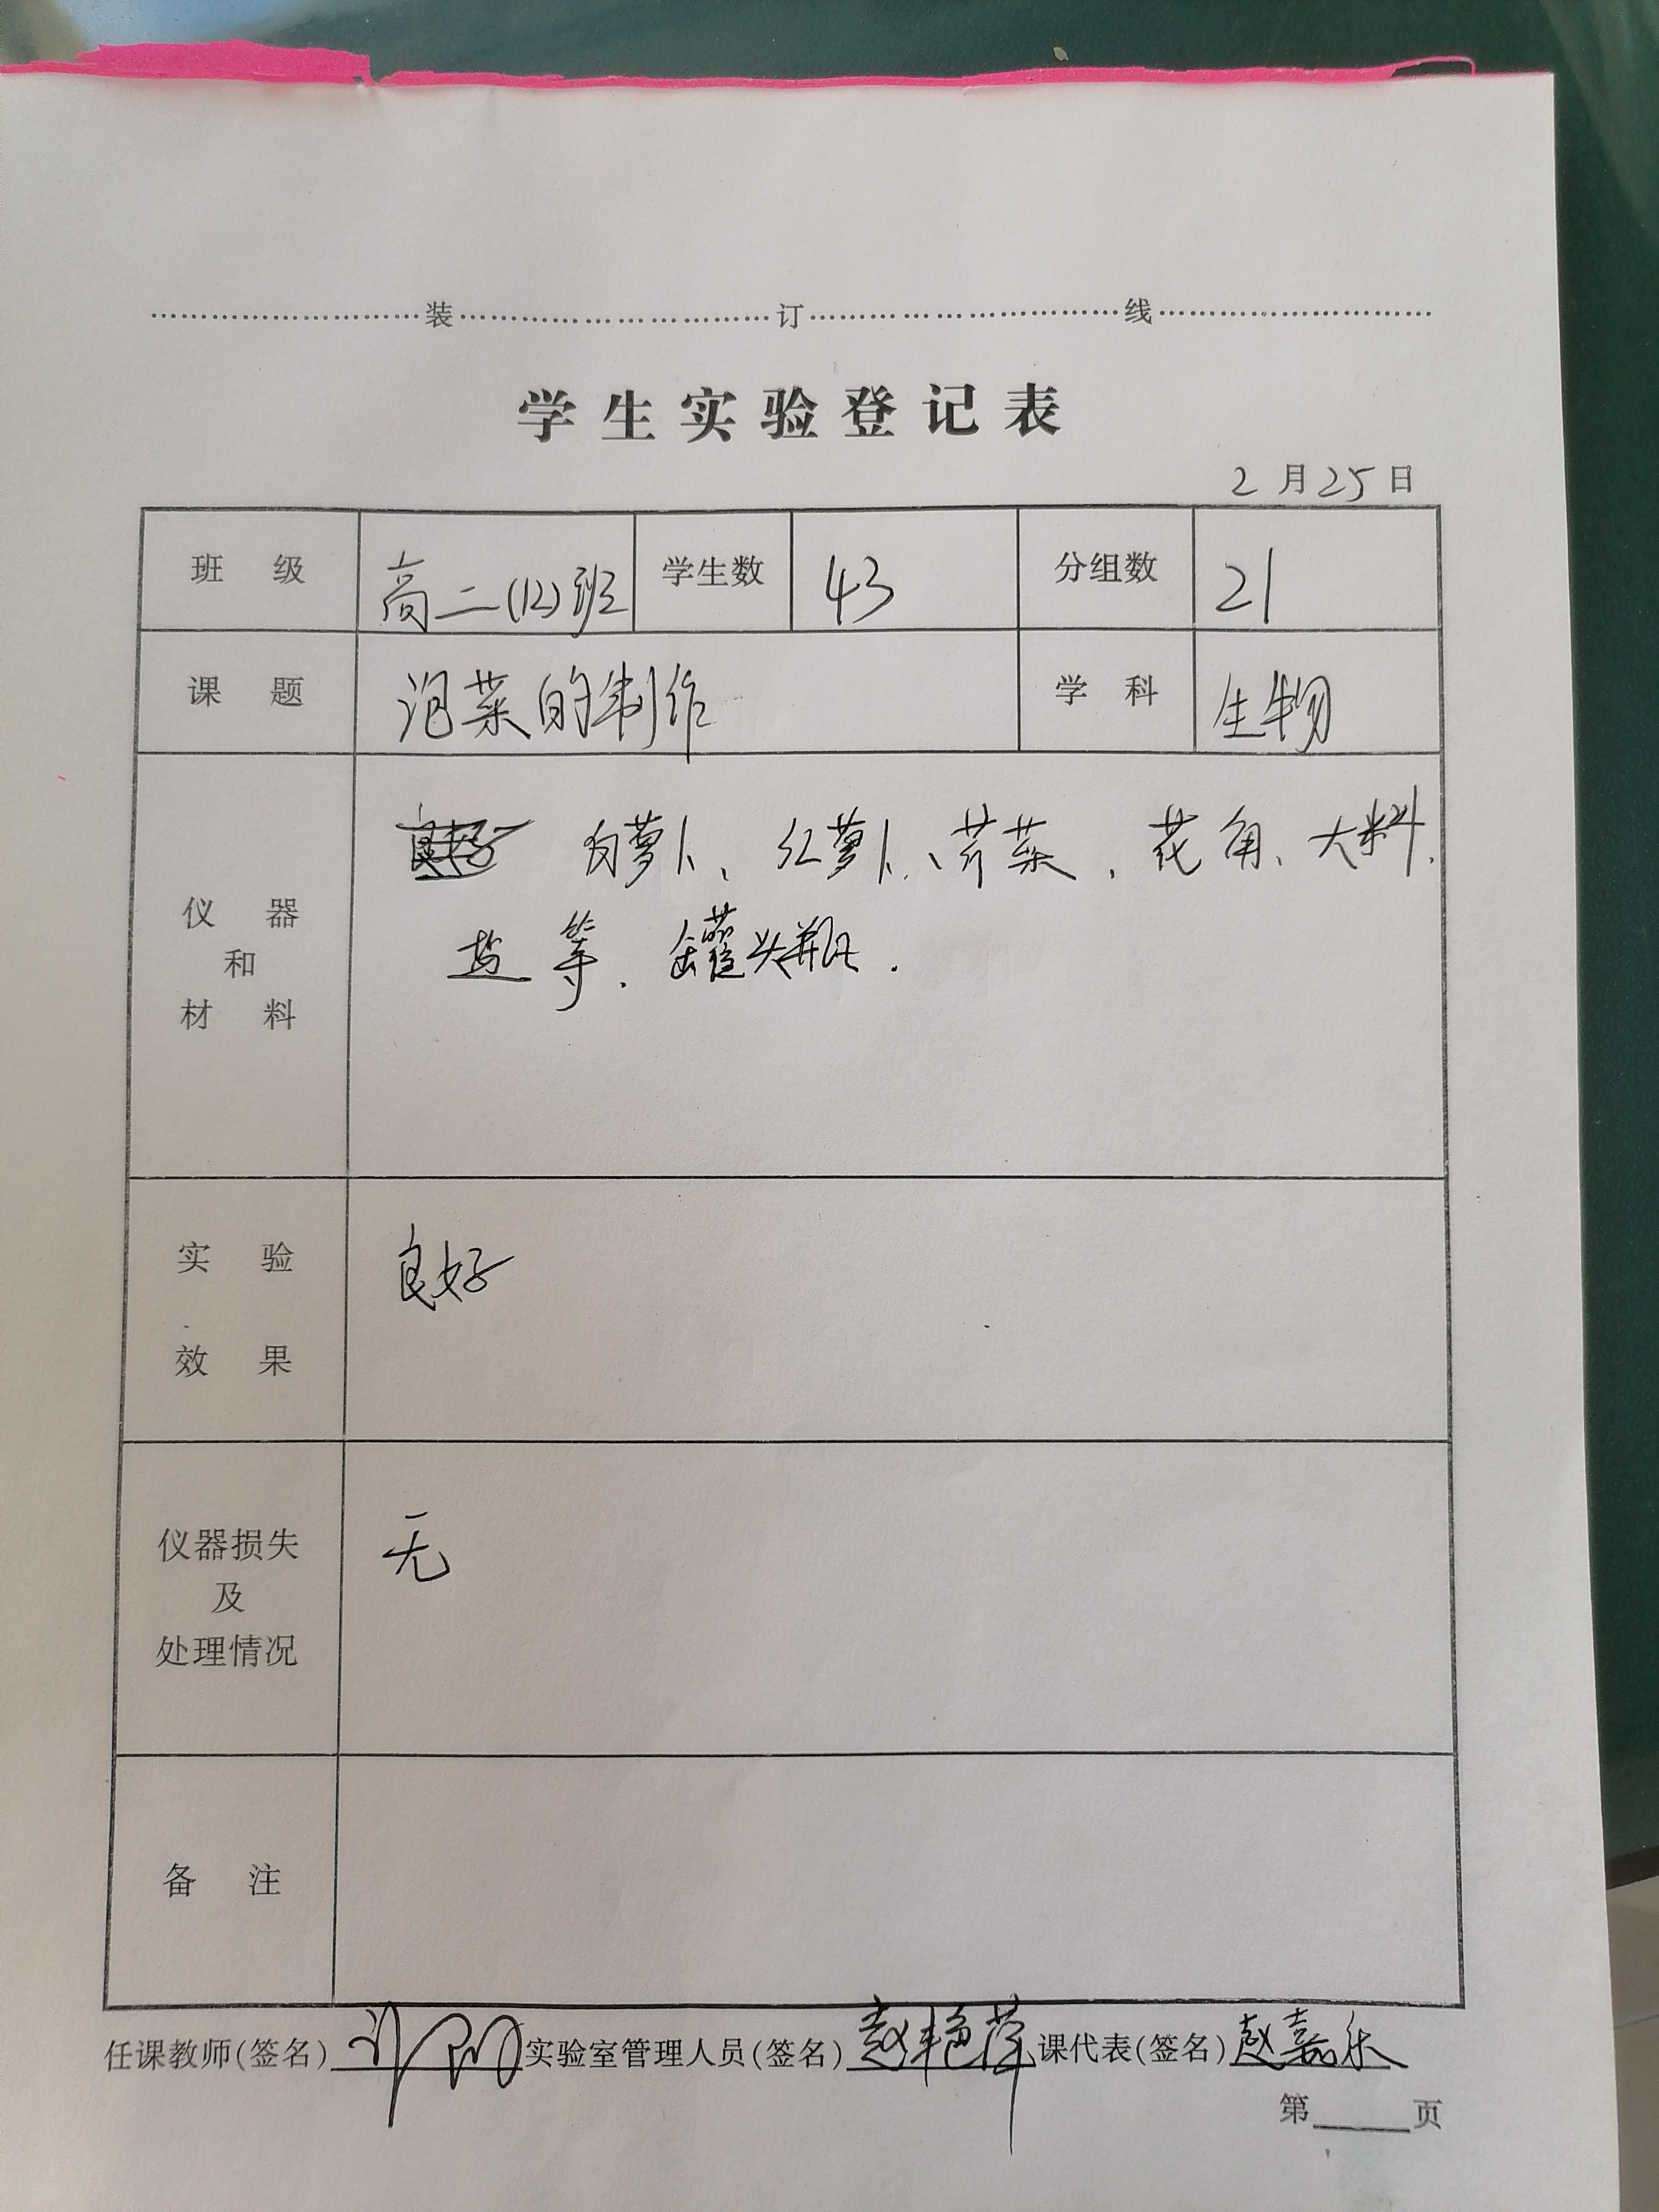 装 订 线
学生实验登记表
2月25日
班级 高二(12)班 学生数 43 分组数 21
课题 泡菜的制作 学科 生物
仪器和材料
白萝卜、红萝卜、芹菜、花角、大料、
盐等、罐头瓶.
实验效果 良好
仪器损失及处理情况 无
备注
任课教师(签名) 实验室管理人员(签名)赵艳萍 课代表(签名)赵嘉乐
第 页